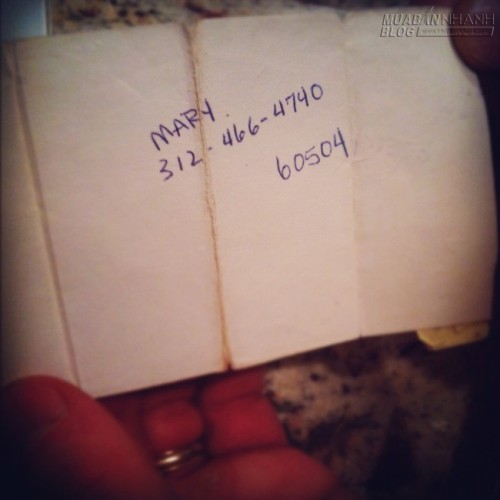 MUABÁNNHANH
BLOG
MARY.
312-466-4740
60504